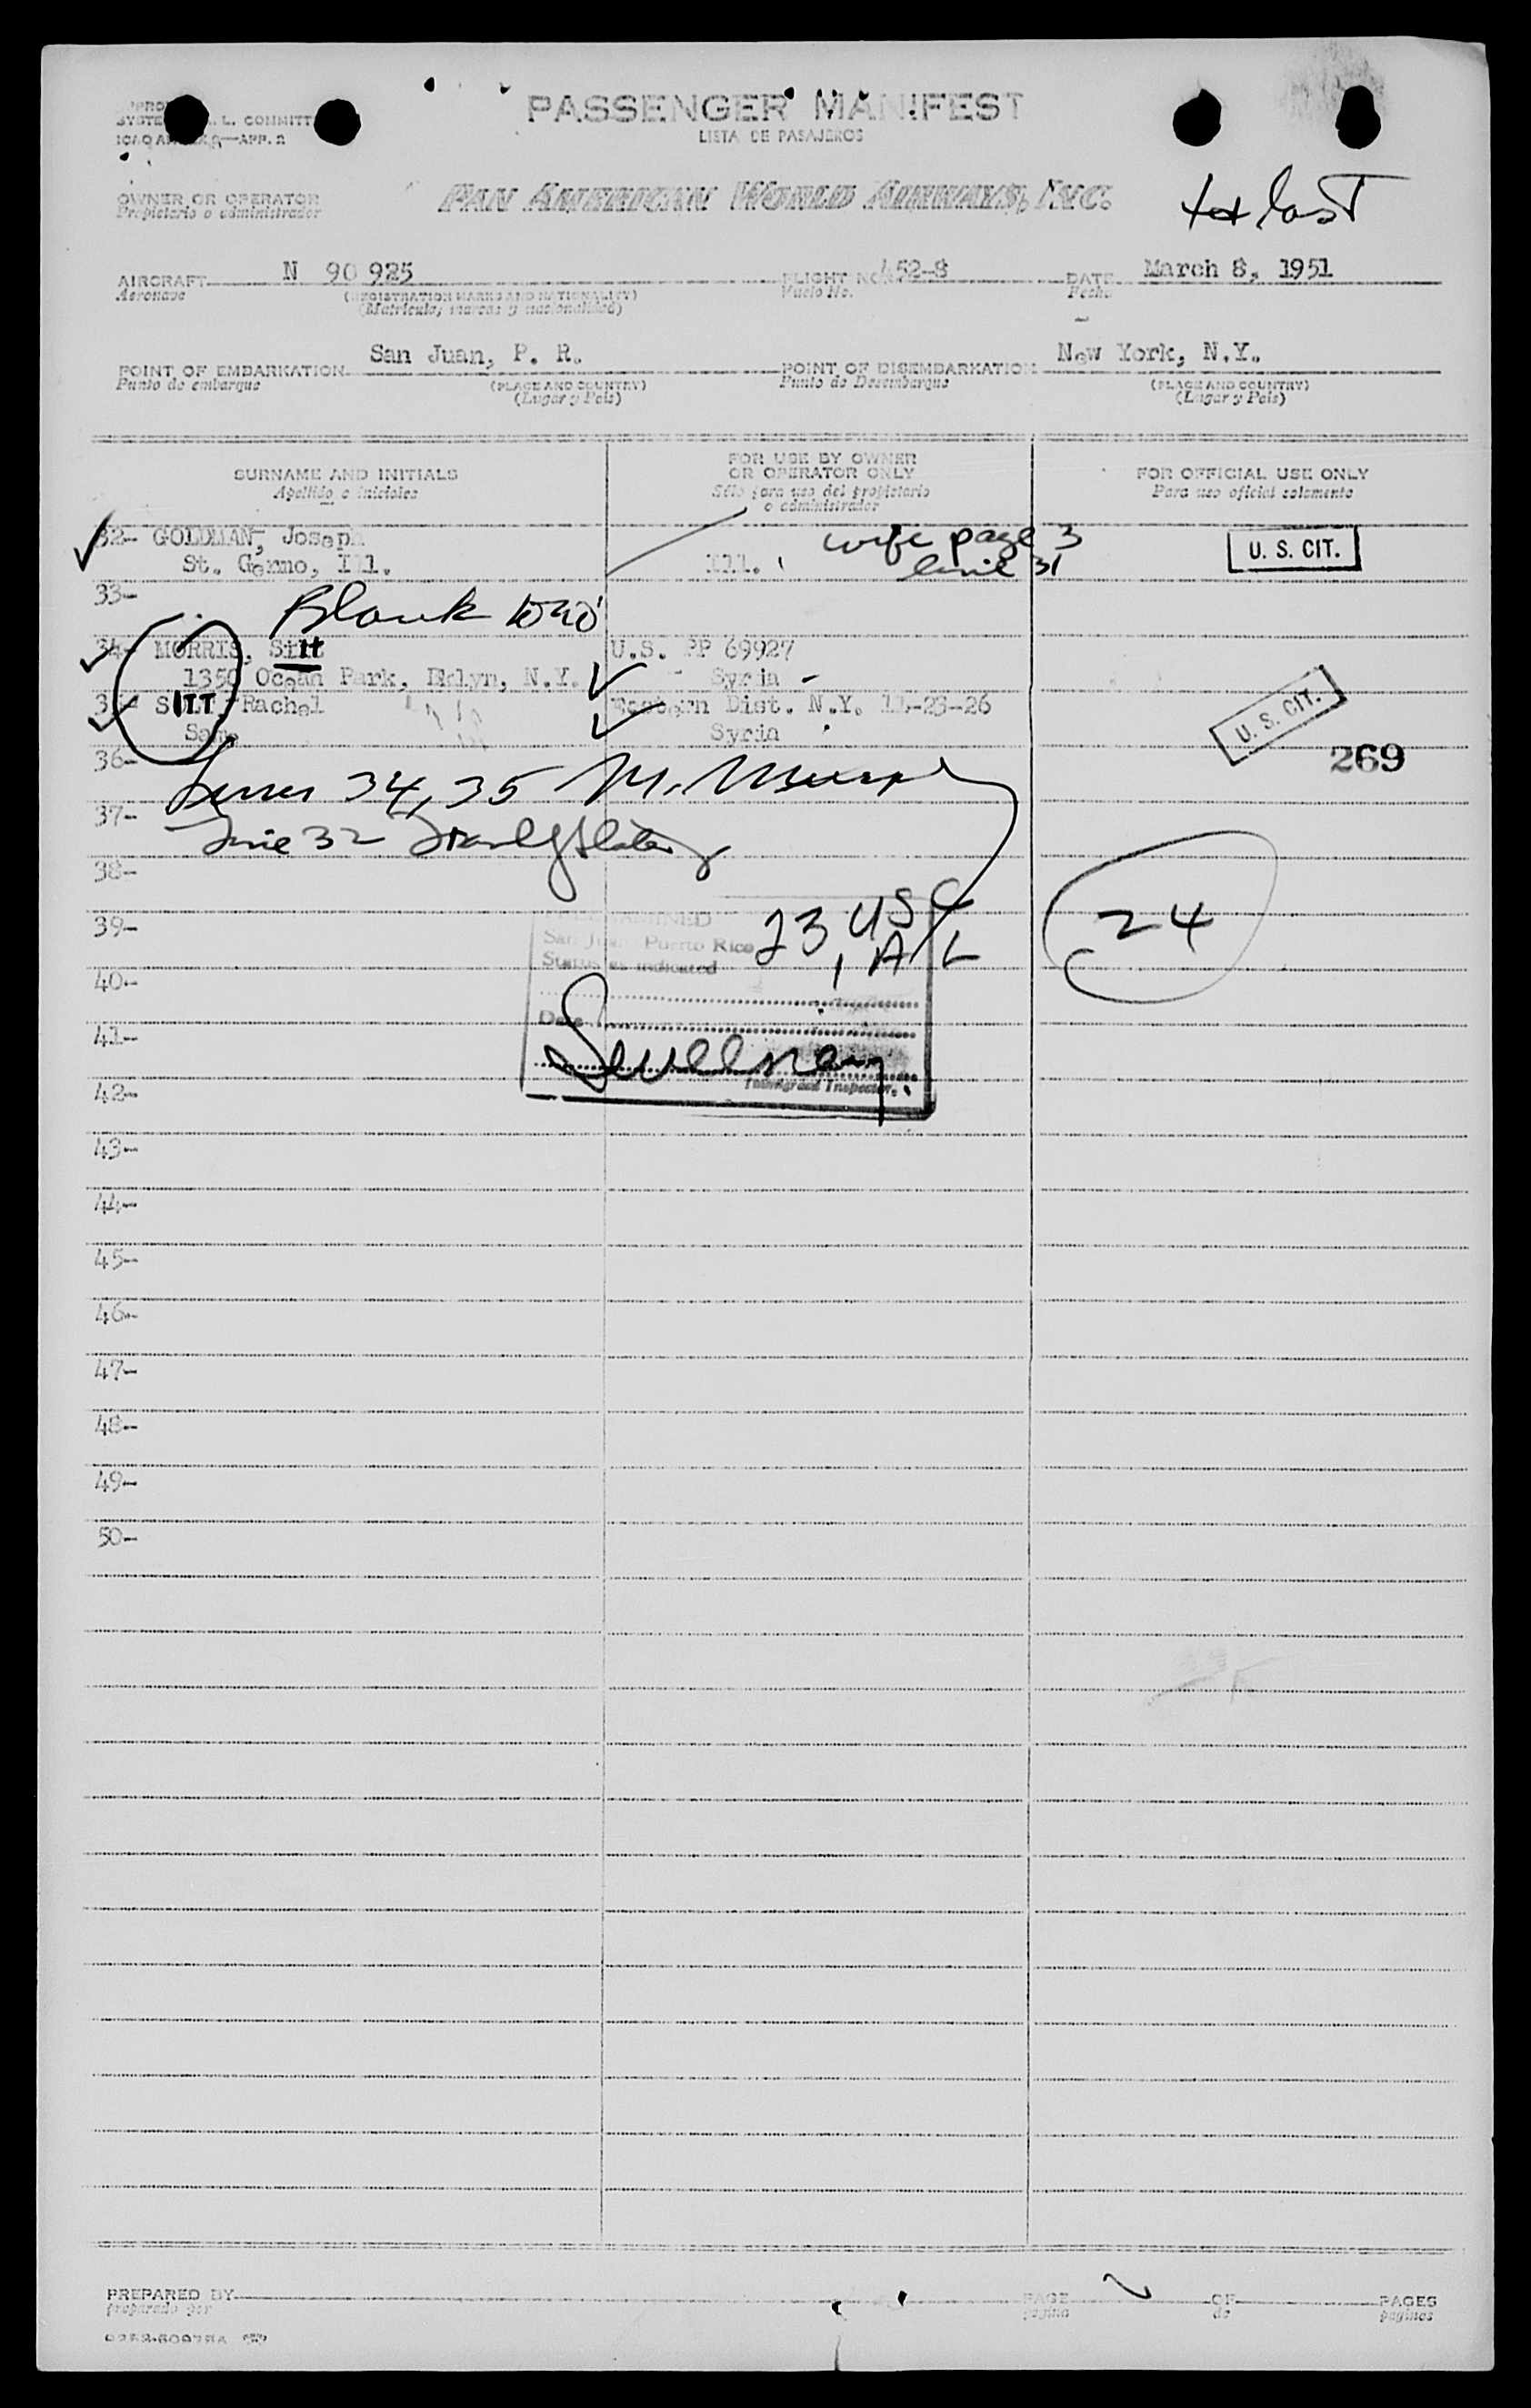 PASSENGER MANIFEST
LISTA DE PASAJEROS
L. COMMITT
APP. 2
OWNER OR OPERATOR
Propietario o administrador
PAN AMERICAN WORLD AIRWAYS, INC.
last
AIRCRAFT N 90 925 FLIGHT NO. 452-8 DATE March 8, 1951
Aeronave (REGISTRATION MARKS AND NATIONALITY) Vuelo No. Fecha
(Matricula, marcas y nacionalidad)
POINT OF EMBARKATION San Juan, P. R. POINT OF DISEMBARKATION New York, N.Y.
Punto de embarque (PLACE AND COUNTRY) Punto de Desembarque (PLACE AND COUNTRY)
(Lugar y Pais) (Lugar y Pais)
SURNAME AND INITIALS
Apellido e iniciales
FOR USE BY OWNER
OR OPERATOR ONLY
Sólo para uso del propietario
o administrador
FOR OFFICIAL USE ONLY
Para uso oficial solamente
32- GOLDMAN, Joseph wife page 3
St. Germo, Ill. Ill. line 31
U. S. CIT.
33- Blank
34- MORRIS, Sitt U.S. PP 69927
1350 Ocean Park, Bklyn, N.Y. Syria
35- SITT, Rachel Eastern Dist. N.Y. 11-23-26
Same Syria
U. S. CIT.
269
36- Lines 34, 35 M.
37- Line 32
38-
39-
EXAMINED
San Juan Puerto Rico
Status as indicated
23 USC
1 A/L
24
40-
Date
41-
Immigrant Inspector.
42-
43-
44-
45-
46-
47-
48-
49-
50-
PREPARED BY PAGE OF PAGES
preparado por pagina de paginas